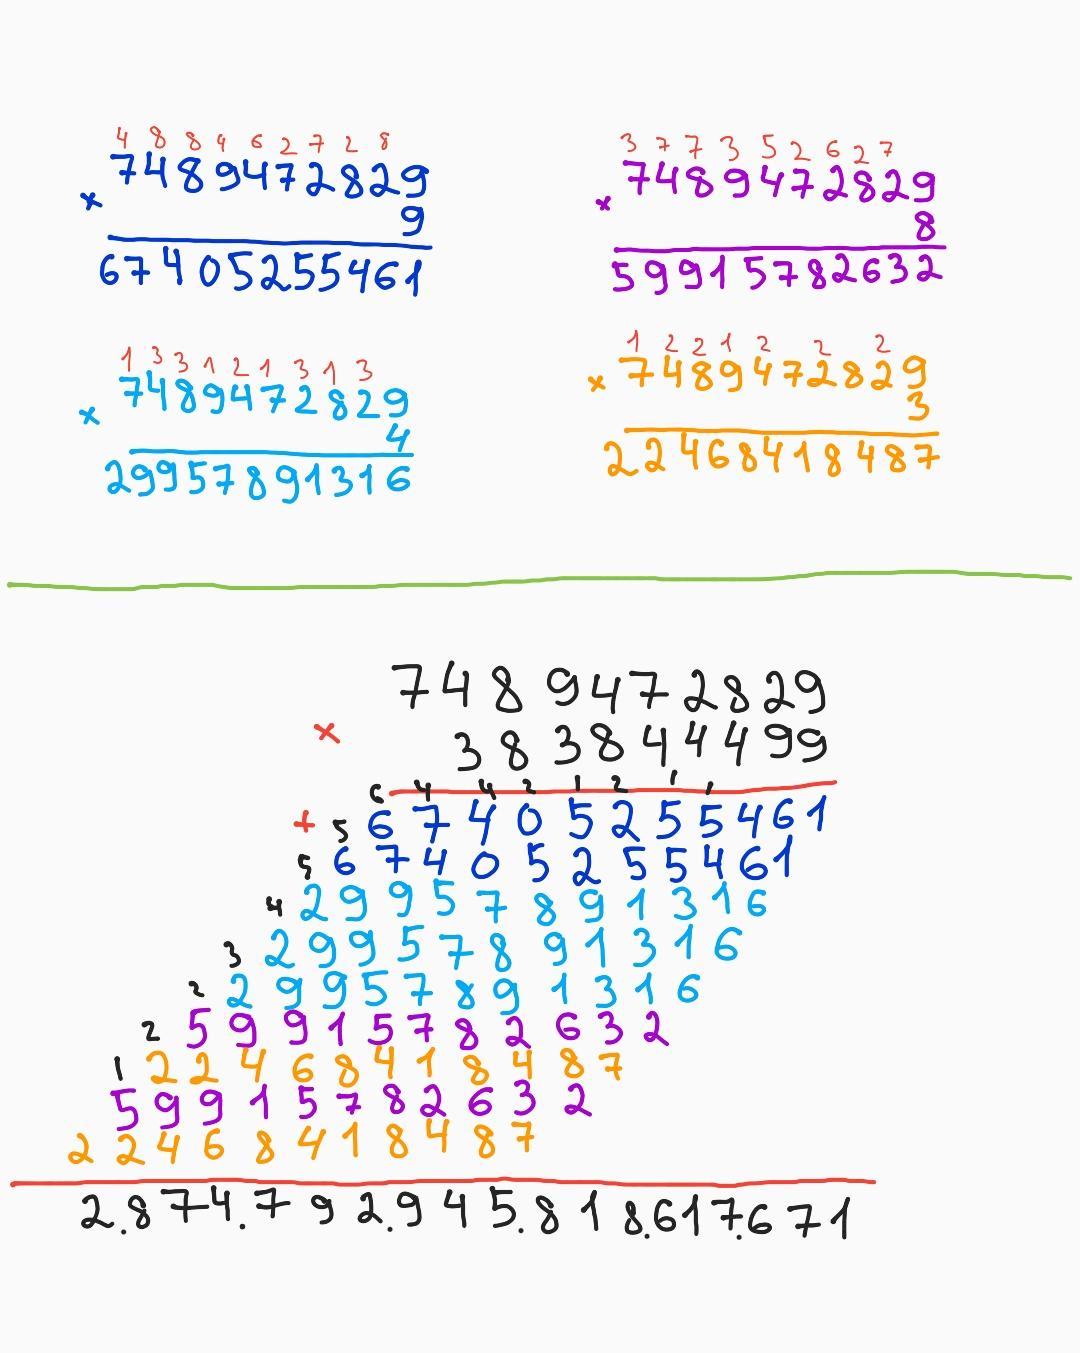 4 8 8 4 6 2 7 2 8
7489472829
× 9
67405255461
3 7 7 3 5 2 6 2 7
7489472829
× 8
59915782632
1 3 3 1 2 1 3 1 3
7489472829
× 4
29957891316
1 2 2 1 2 2 2
7489472829
× 3
22468418487
7489472829
× 383844499
6 4 4 2 1 2 1 1
+ 5 67405255461
5 67405255461
4 29957891316
3 29957891316
2 29957891316
2 59915782632
1 22468418487
59915782632
22468418487
2.874.792.945.818.617.671